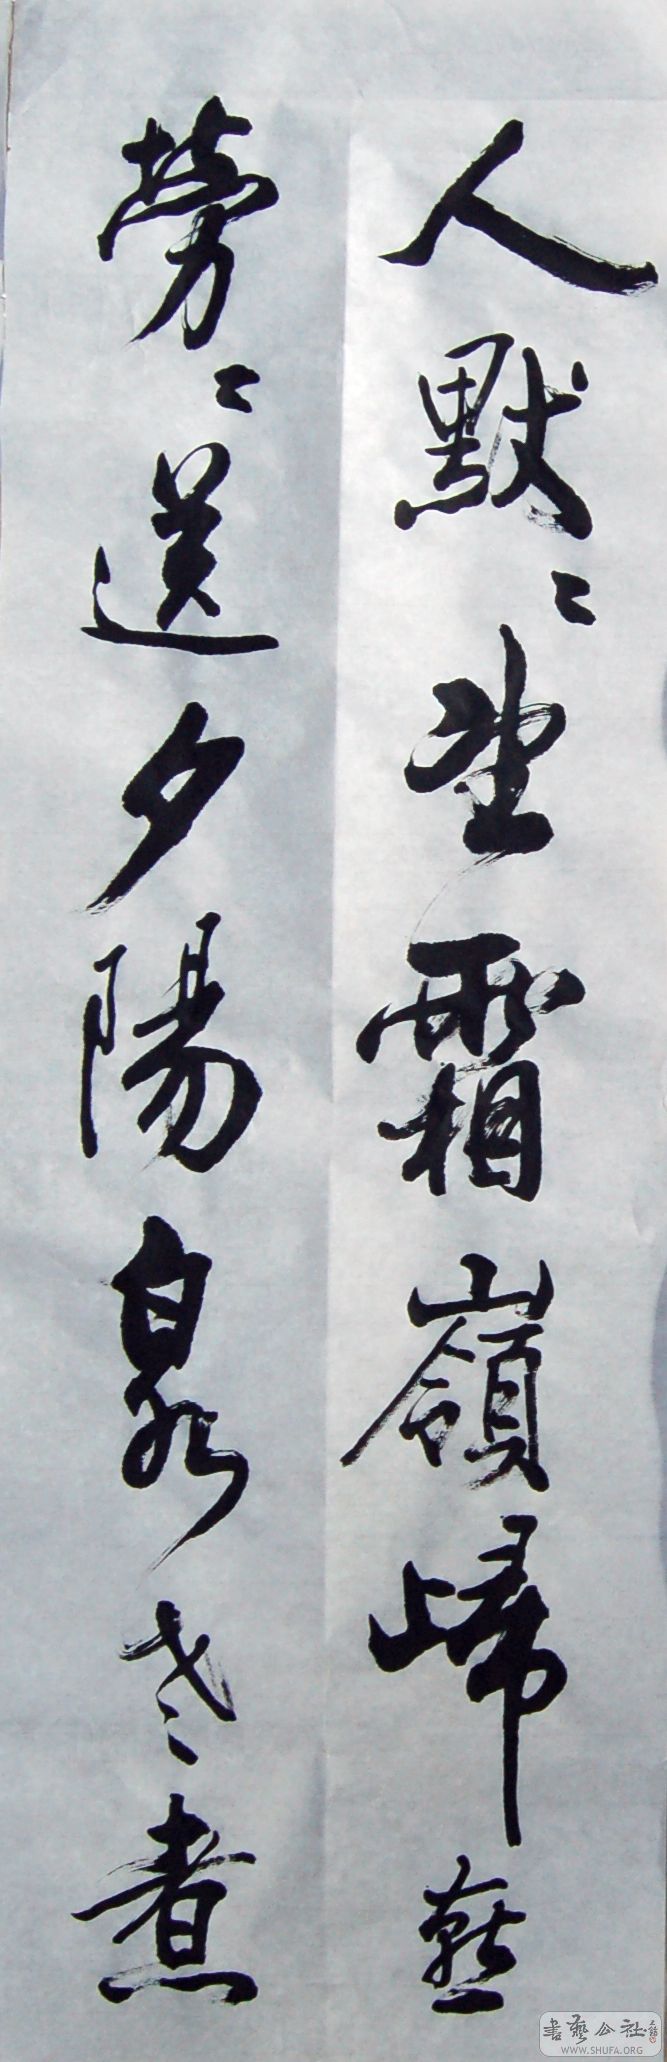 人默〻坐霜嶺歸燕
勞〻送夕陽泉聲煮
書藝公社
WWW.SHUFA.ORG